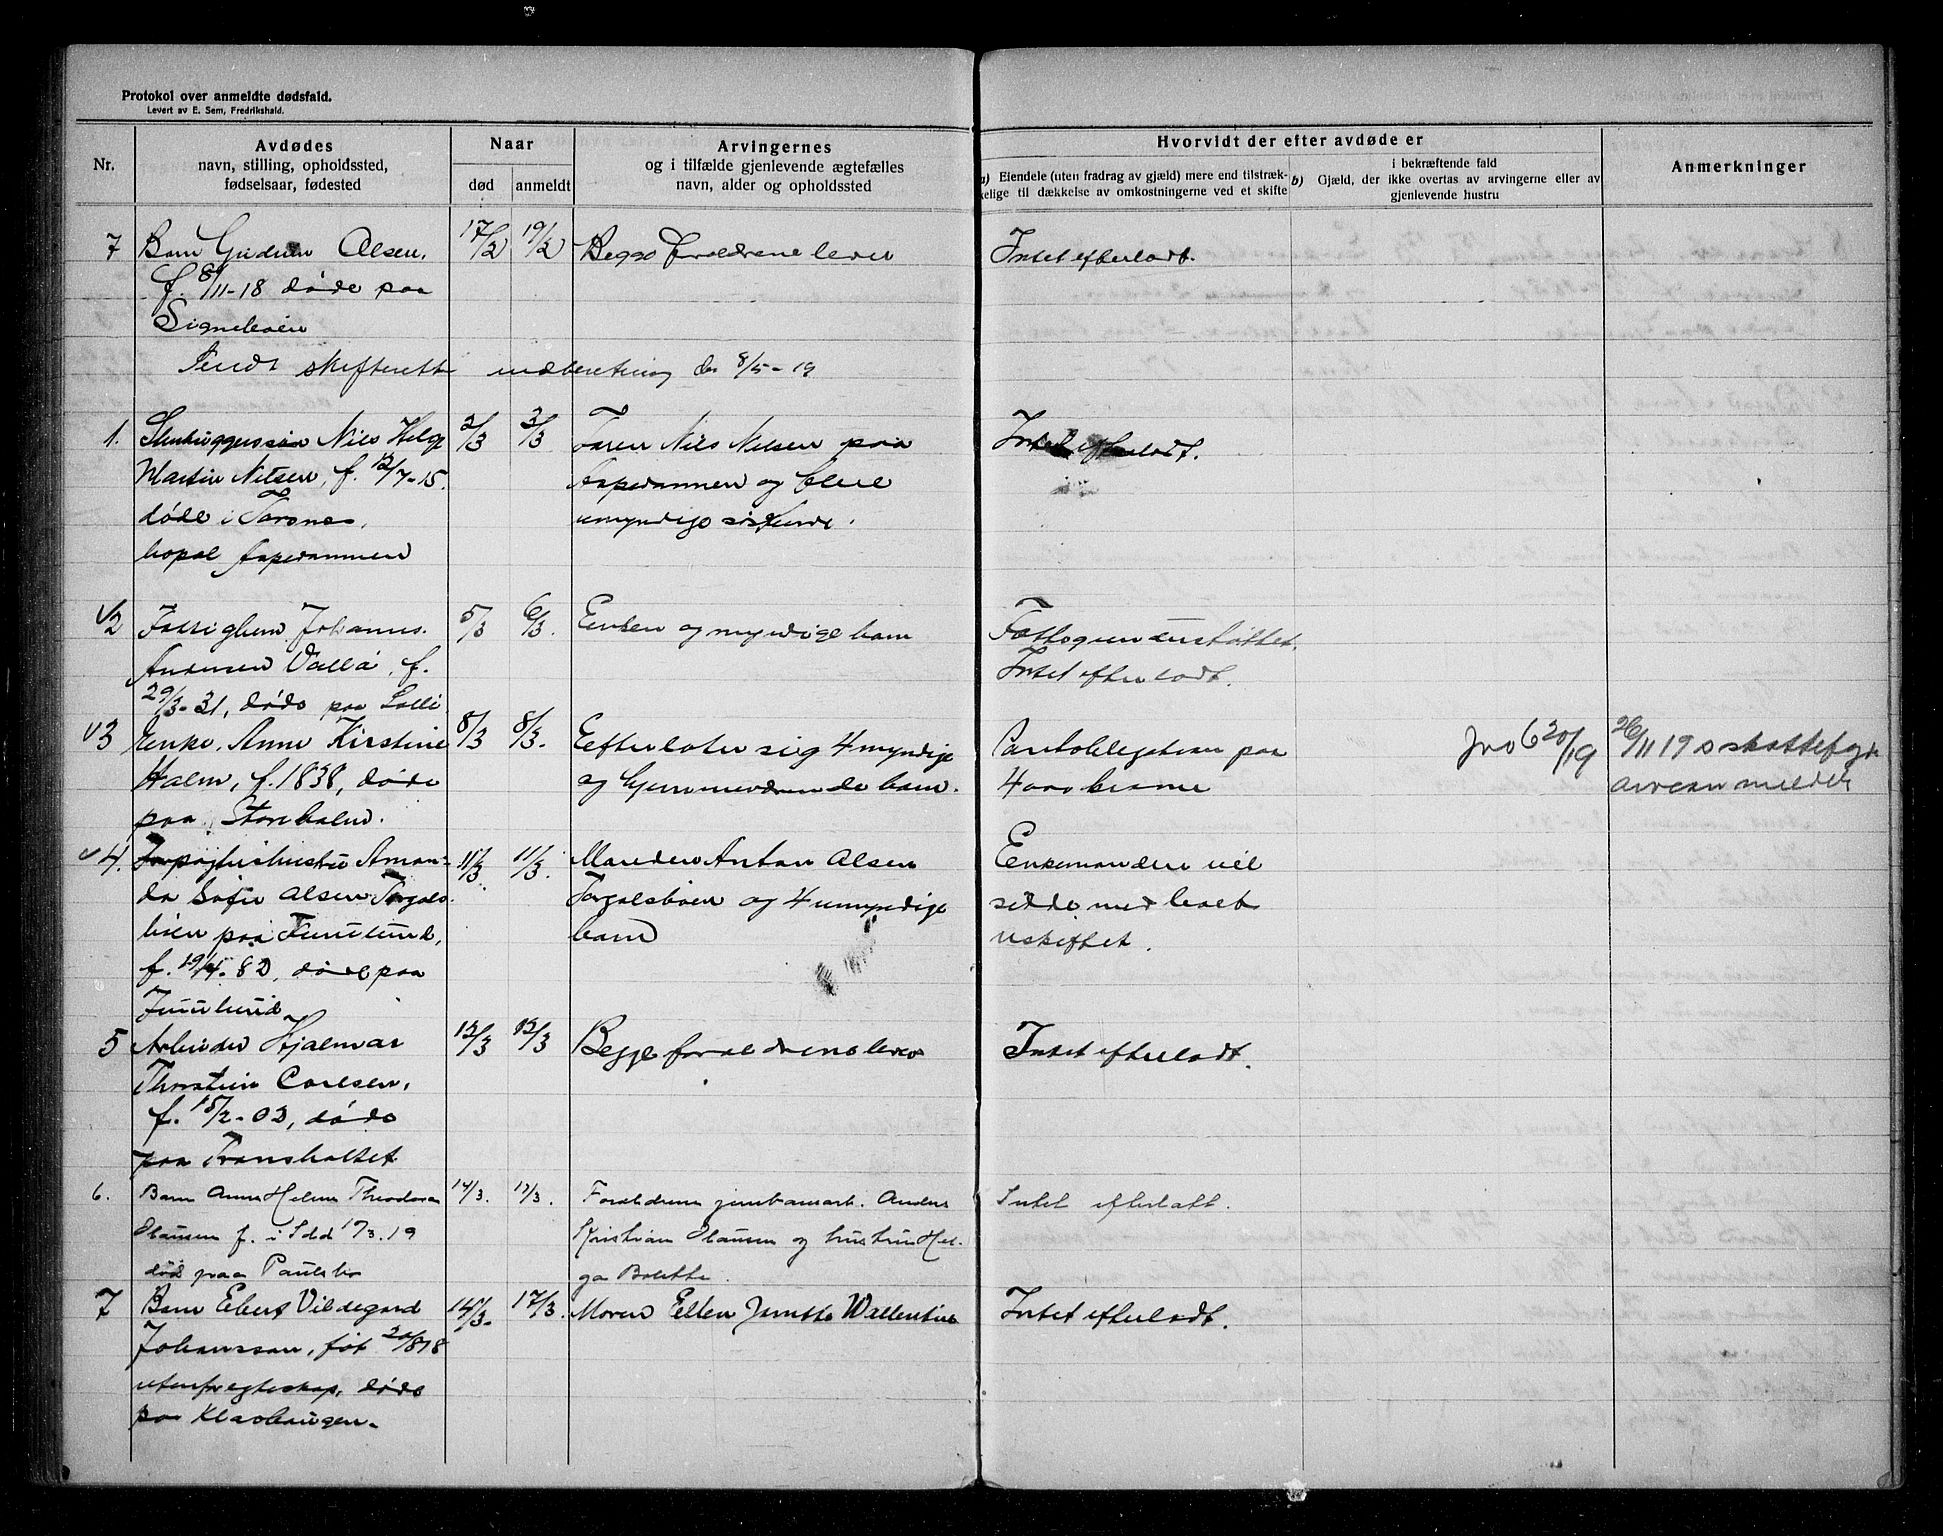 Protokol over anmeldte dødsfald.
Levert av E. Sem, Fredrikshald.
Nr.
Avdødes
navn, stilling, opholdssted,
fødselsaar, fødested
Naar
død
anmeldt
Arvingernes
og i tilfælde gjenlevende ægtefælles
navn, alder og opholdssted
Hvorvidt der efter avdøde er
a) Eiendele (uten fradrag av gjæld) mere end tilstræk-
kelige til dækkelse av omkostningerne ved et skifte
i bekræftende fald
b) Gjæld, der ikke overtas av arvingerne eller av
gjenlevende hustru
Anmerkninger
7
Barn Gudrun Olsen,
f. 8/11-18 døde paa
Signebøen
17/2
19/2
Begge forældrene lever
Intet efterladt.
Sendt skifteretten indberetning den 8/5-19
1.
Stenhuggersøn Nils Helge
Martin Nilsen, f. 12/7-15.
døde i Torsnes,
bopæl Aspedammen
2/3
3/3
Faren Nils Nilsen paa
Aspedammen og flere
umyndige søskende.
Intet efterladt.
2
Fattiglem Johannes
Andersen Valla, f.
29/3-31, døde paa Solli
5/3
6/3.
Enken og myndige barn
Fattigunderstøttet.
Intet efterladt.
3
Enke. Anne Kirstine
Holm, f. 1838, døde
paa Storeholm.
8/3
8/3.
Efterlater sig 4 myndige
og hjemmeværende barn.
Pantobligation paa
4000 kroner
Jno 620/19
26/11 19 s skattefogd
arveanmeldels
4.
hustru Aman-
da Sofie Olsen Torgals-
bøen paa Funulund,
f. 19/4-82, døde paa
Funulund
11/3.
11/3.
Manden Anton Olsen
Torgalsbøen og 4 umyndige
barn
Enkemanden vil
sidde med boet
uskiftet.
5
Arbeider Hjalmar
Thorstein Carlsen,
f. 15/2-03, døde
paa Transholtet
12/3
12/3
Begge forældrene lever
Intet efterladt.
6.
Barn Anna Helene Theodora
Olausen f. i Idd 1/3.19
død paa Paulsbo
14/3.
17/3.
Forældrene jernbanearb. Anders
Kristian Olausen og hustru Hel-
ga Bolette.
Intet efterlatt.
7
Barn Ebert Vildegard
Johansson, føt 20/8 18
utenfor egteskap, døde
paa Klavhaugen.
14/3.
17/3.
Moren Ellen Janette Wallentine
Intet efterladt.